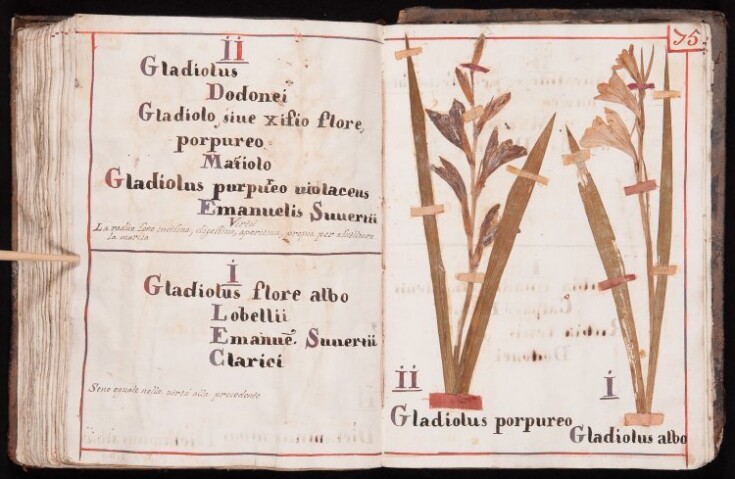 ii
Gladiolus
Dodonei
Gladiolo, siue xifio flore,
porpureo
Matiolo
Gladiolus purpureo violaceus
Emanuelis Suuertii
Virtù
La radice
la
i
Gladiolus flore albo
Lobellii
Emanuē. Suuertii
Clarici
Sono equale nelle uertù alla precedente
75
ii
Gladiolus porpureo
i
Gladiolus albo